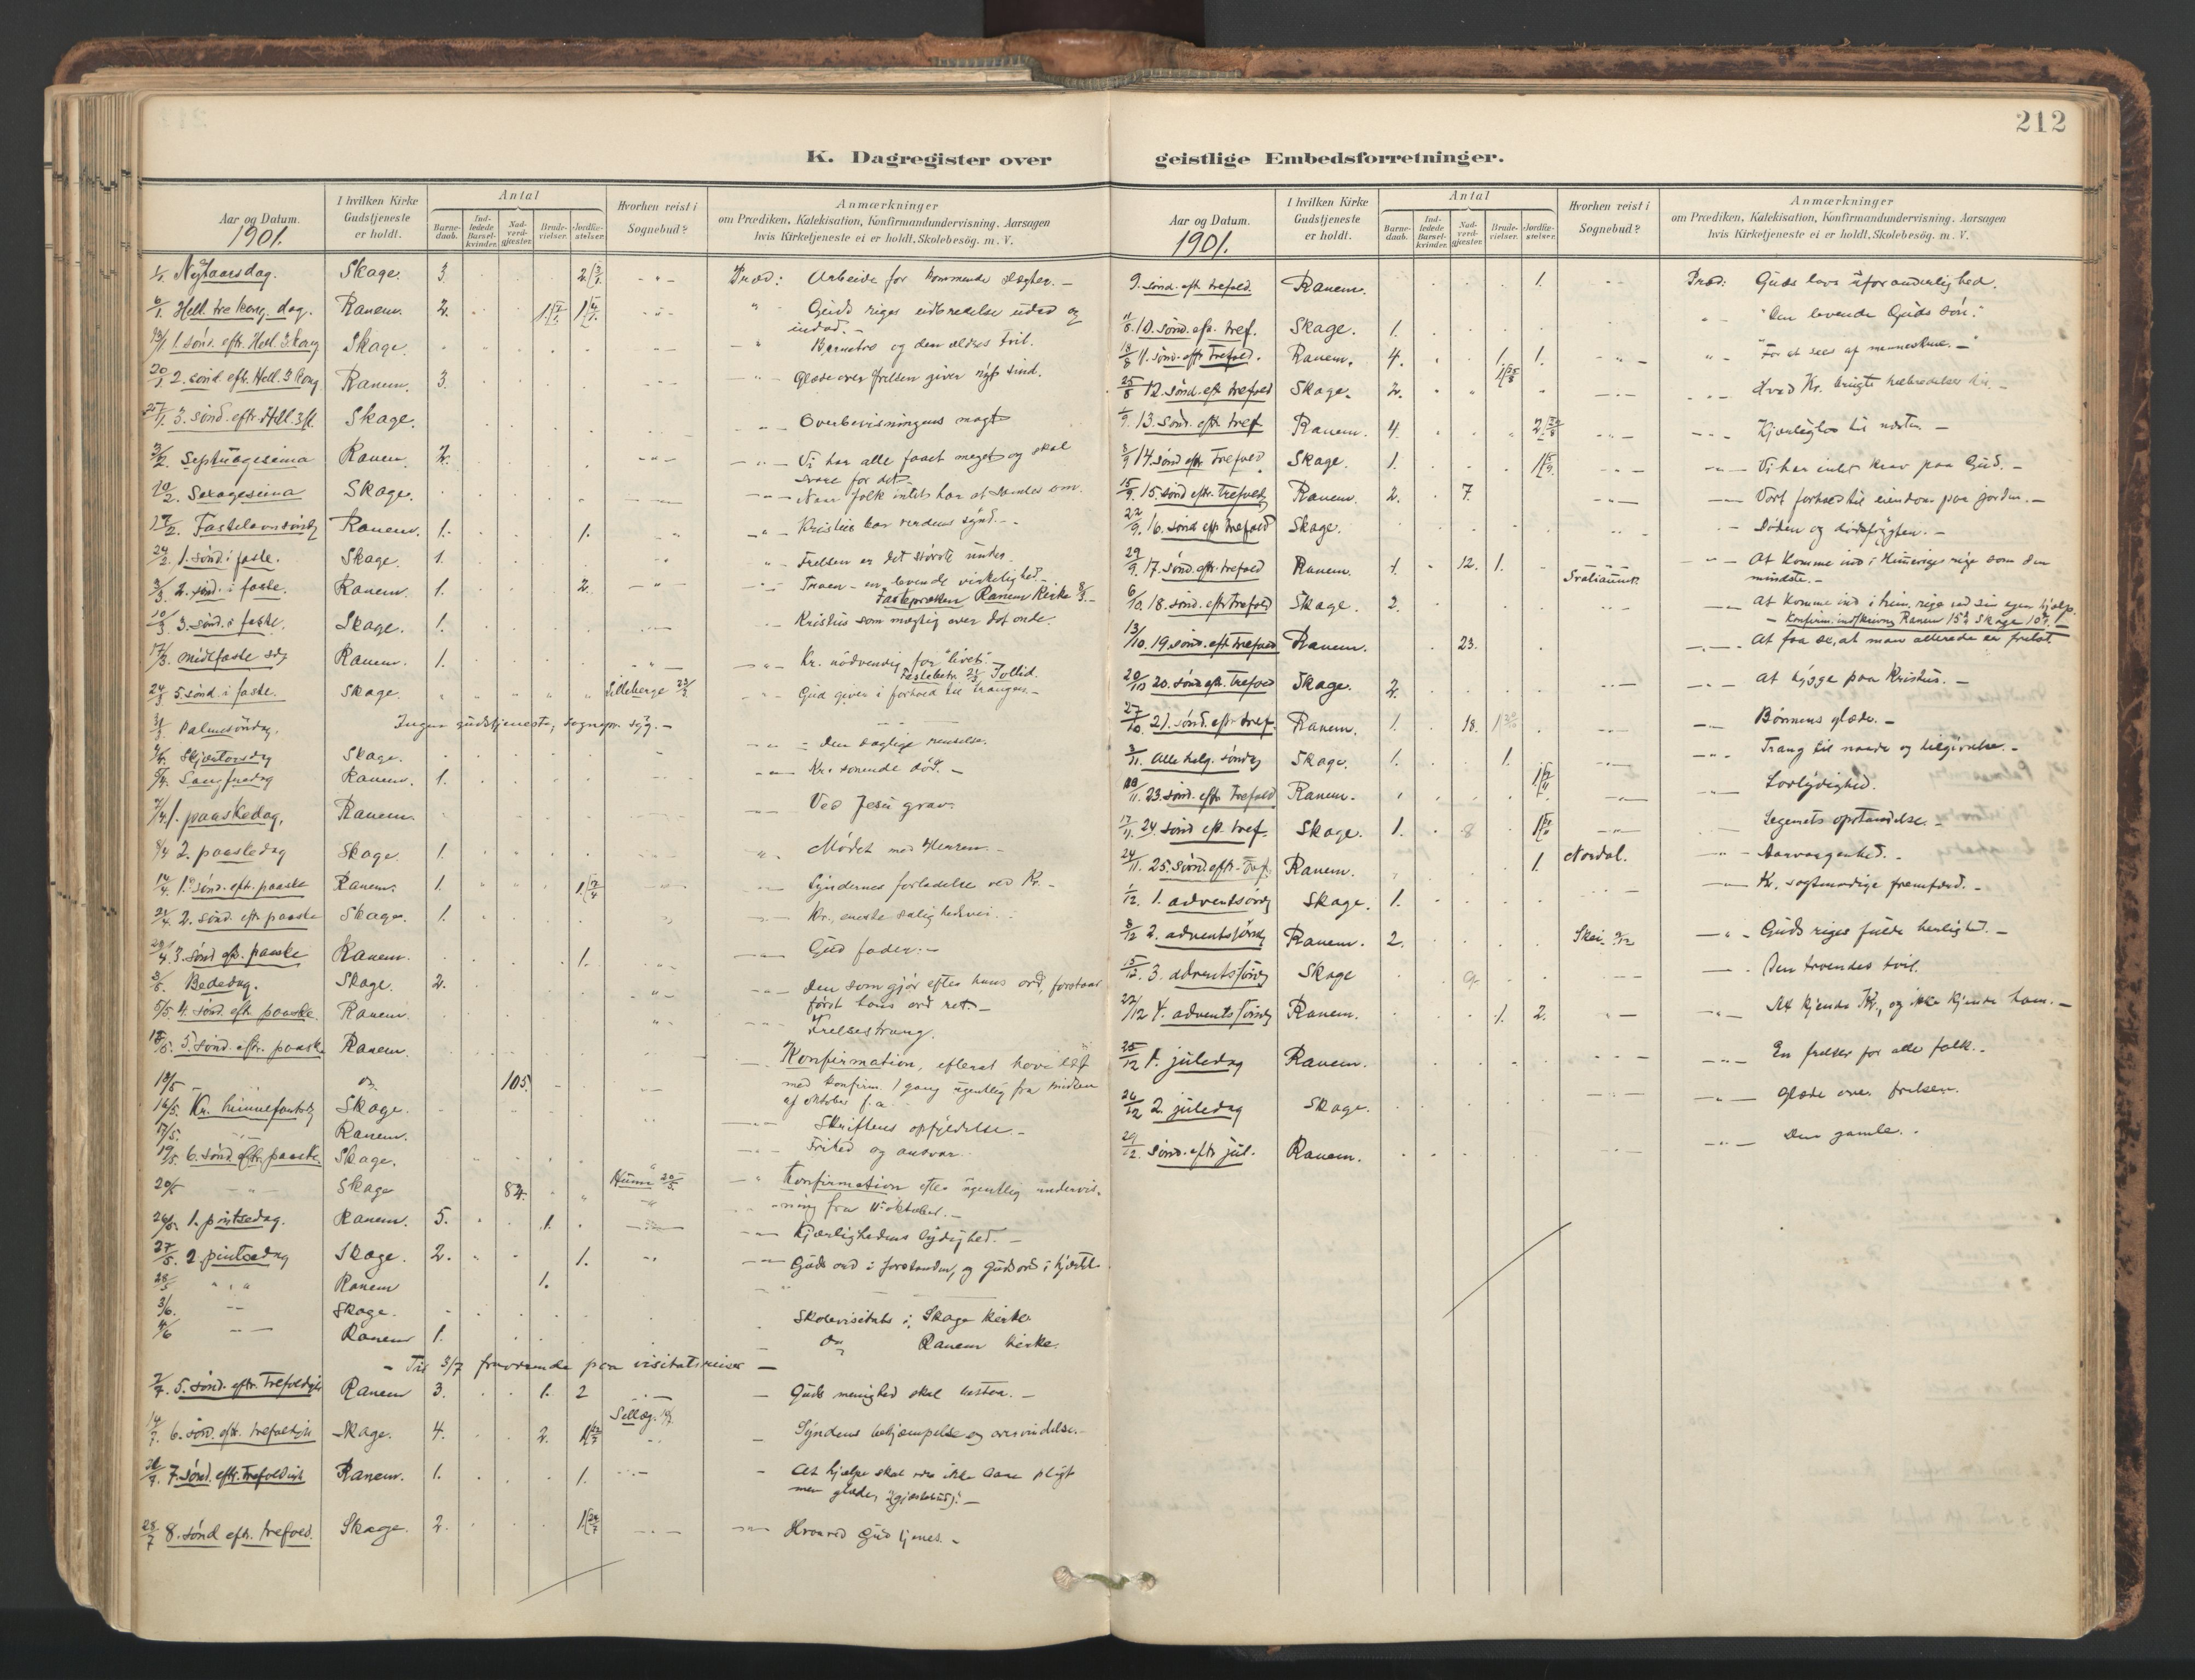 212
K. Dagregister over geistlige Embedsforretninger.
Aar og Datum. 1901.
I hvilken Kirke Gudstjeneste er holdt.
Antal
Barnedaab.
Indledede Barselkvinder.
Nadverdgjæster.
Brudevielser.
Jordfæstelser.
Hvorhen reist i Sognebud?
Anmærkninger
om Prædiken, Katekisation, Konfirmandundervisning, Aarsagen
hvis Kirketjeneste ei er holdt, Skolebesøg. m. V.
1/1 Nytaarsdag. Skage. 3. 2. Præd: Arbeide for kommende slægter. —
6/1 Hell. tre kong. dag. Ranem. 2. Guds riges udbredelse udad og
indad. —
13/1 1. sønd. eftr. Hell. 3 kong Skage. Barnetro og den ældres tvil.
20/1 2. sønd. eftr. Hell. 3 kong Ranem. 3. Glæde over frelsen giver nyt sind.
27/1 3. sønd. eftr. Hell. 3 k. Skage. Overbevisningens magt
3/2. Septuagesima Ranem. 2. Vi har alle faaet meget og skal
svare for det.
10/2. Sexagesima Skage. Naar folk intet har at samles om.
17/2. Fastelavnssøndg Ranem. 1. 1. Kristus bar verdens synd. —
24/2 1. sønd. i faste. Skage. 1. Frelsen er det største under.
3/3 2. sønd. i faste. Ranem. 1. 2. Troen – en levende virkelighed. —
Fastepræken Ranem Kirke 8/3. —
10/3 3. sønd. i faste. Skage. 1. Kristus som mægtig over det onde.
17/3. Midtfaste sdg Ranem. 1. Kr. nødvendig for "livet". —
24/3 5 sønd. i faste. Skage. Lilleberge 22/3 Gud giver i forhold til trangen. —
31/3 Palmesøndag. Ingen gudstjeneste, sognepr. syg. —
4/4. Skjærtorsdg Skage. Den daglige renselse.
5/4. Langfredag Ranem. 1. Kr. sonende død. —
7/4 1. paaskedag, Ranem. Ved Jesu grav.
8/4 2. paaskedag Skage. 1. Mødet med Herren. —
14/4. 1. sønd. eftr. paaske Ranem. 1. Syndernes forladelse ved Kr. —
21/4 2. sønd. eftr. paaske Skage. 1. Kr., eneste salighedsvei.
28/4. 3. sønd eftr. paaske Ranem. 1. Gud fader. —
3/5. Bededag. Skage. 2. Den som gjør efter hans ord, forstaar
først hans ord ret. —
5/5. 4. sønd. eftr. paaske. Ranem. Frelsestrang.
12/5. 5. sønd. eftr. paaske Ranem. Konfirmation, efterat have læst
med konfirm. 1 gang ugentlig fra midten
af oktober f.a.
105.
16/5. Kr. himmelfartsdg Skage.
17/5. Ranem. Skriftens opfyldelse. —
19/5. 6. sønd. eftr. paaske. Skage. Frihed og ansvar.
20/5 Skage 84. Hunn 20/5 Konfirmation efter ugentlig undervis-
ning fra 11te oktober. —
26/5. 1. pintsedag. Ranem. 5. 1. Kjærlighedens lydighed. —
27/5. 2. pintsedag Skage. 2. 1. Guds ord i forstanden, og Guds ord i hjertet.
28/5 Ranem 1.
3/6. Skage. Skolevisitats i Skage kirke
4/6 Ranem 1. Do Ranem kirke.
– Til 5/7 fraværende paa visitatsreiser —
7/7. 5. sønd. eftr. trefoldigh Ranem 3. 1. 2 Guds menighed skal bestaa. —
14/7. 6. sønd. eftr. trefoldigh Skage. 4. 2. Syndens bekjæmpelse og overvindelse. —
21/7. 7. sønd. eftr. trefoldigh Ranem. 1. 1. At hjælpe skal være ikke bare pligt
men glæde,
28/7 8. sønd eftr. trefold. Skage. 2. Hvorved Gud tjenes. —
K. Dagregister over geistlige Embedsforretninger.
Aar og Datum. 1901.
I hvilken Kirke Gudstjeneste er holdt.
Antal
Barnedaab.
Indledede Barselkvinder.
Nadverdgjæster.
Brudevielser.
Jordfæstelser.
Hvorhen reist i Sognebud?
Anmærkninger
om Prædiken, Katekisation, Konfirmandundervisning, Aarsagen
hvis Kirketjeneste ei er holdt, Skolebesøg. m. V.
9. sønd. eft trefold. Ranem. 1. Præd: Guds lovs uforanderlighed.
11/8 10. sønd. eftr. tref. Skage. 1. "Den levende Guds søn."
18/8 11. sønd. eftr trefold. Ranem. 4. 1. 1. "For at sees af menneskene. —"
25/8 12. sønd. eftr trefold Skage. 2. Hvad Kr. brugte helbredelser til. —
1/9. 13. sønd. eftr tref Ranem. 4. Kjærlighed til næsten. —
8/9 14. sønd eftr trefold Skage. 1. Vi har intet krav paa Gud. —
15/9. 15. sønd eftr. trefoldg Ranem. 2. 7. Vort forhold til eiendom paa jorden. —
22/9. 16. sønd eftr trefold Skage. Døden og dødsfrygten. —
29/9. 17. sønd. eftr. trefold Ranem. 1. 12. 1. At komme ind i Himmeriges rige som den
mindste. —
6/10. 18. sønd. eftr trefold Skage. 2. At komme ind i him. rige ved sin egen hjælp.
– Konfirm. indskrivng Ranem 15/ Skage 10/
13/10. 19. sønd. eft trefold Ranem. 23. At faa se, at man allerede er frelst
20/10 20. sønd eft. trefold Skage. 2. At bygge paa Kristus. —
27/10. 21. sønd. eftr tref. Ranem. 1. 18. Bønnens glæde. —
3/11. Alle helg. søndg Skage. 1. 1. Trang til naade og tilgivelse. —
10/11. 23. sønd. eftr trefold Ranem. Lovlydighed.
17/11. 24. sønd eft. tref. Skage. 1. 8 Legemets opstandelse. —
24/11. 25. sønd. eftr. Tref. Ranem. 1. Nordal. Aarvaagenhed. —
1/12. 1. adventssøndg Skage. 1. Kr. sagtmodige fremfærd. —
8/12 2. adventssøndg Ranem. 2. Skei 9/12 Guds riges fulde herlighed. —
15/12. 3. adventssøndg Skage 9. Den troendes tvil.
22/12 4. adventssøndg Ranem. 1. 2. At kjende Kr., og ikke kjende ham. —
25/12 1. juledag Ranem. En frelser for alle folk. —
26/12 2. juledag Skage. Glæde over frelsen.
29/12. sønd. eftr jul. Ranem. Den gamle. .